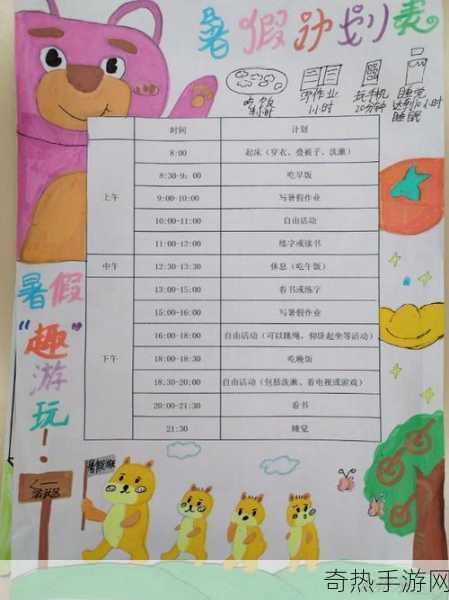 暑假计划表
吃饭
半小时
写作业
1小时
玩手机
20分钟
睡觉
达到10小时
睡眠
时间 计划
上午
8:00 起床（穿衣、叠被子、洗漱）
8:30-9:00 吃早饭
9:00-10:00 写暑假作业
10:00-11:00 自由活动
11:00-12:00 练字或读书
中午
12:30-13:30 休息（吃午饭）
下午
13:00-15:00 看书或练字
15:00-16:00 写暑假作业
16:00-18:00 自由活动（可以跳绳、仰卧起坐等活动）
18:00-18:30 吃晚饭
18:30-20:00 自由活动（包括洗漱、看电视或游戏）
20:00-21:30 看书
21:30 睡觉
暑假
“趣”
游
玩！
奇热手游网